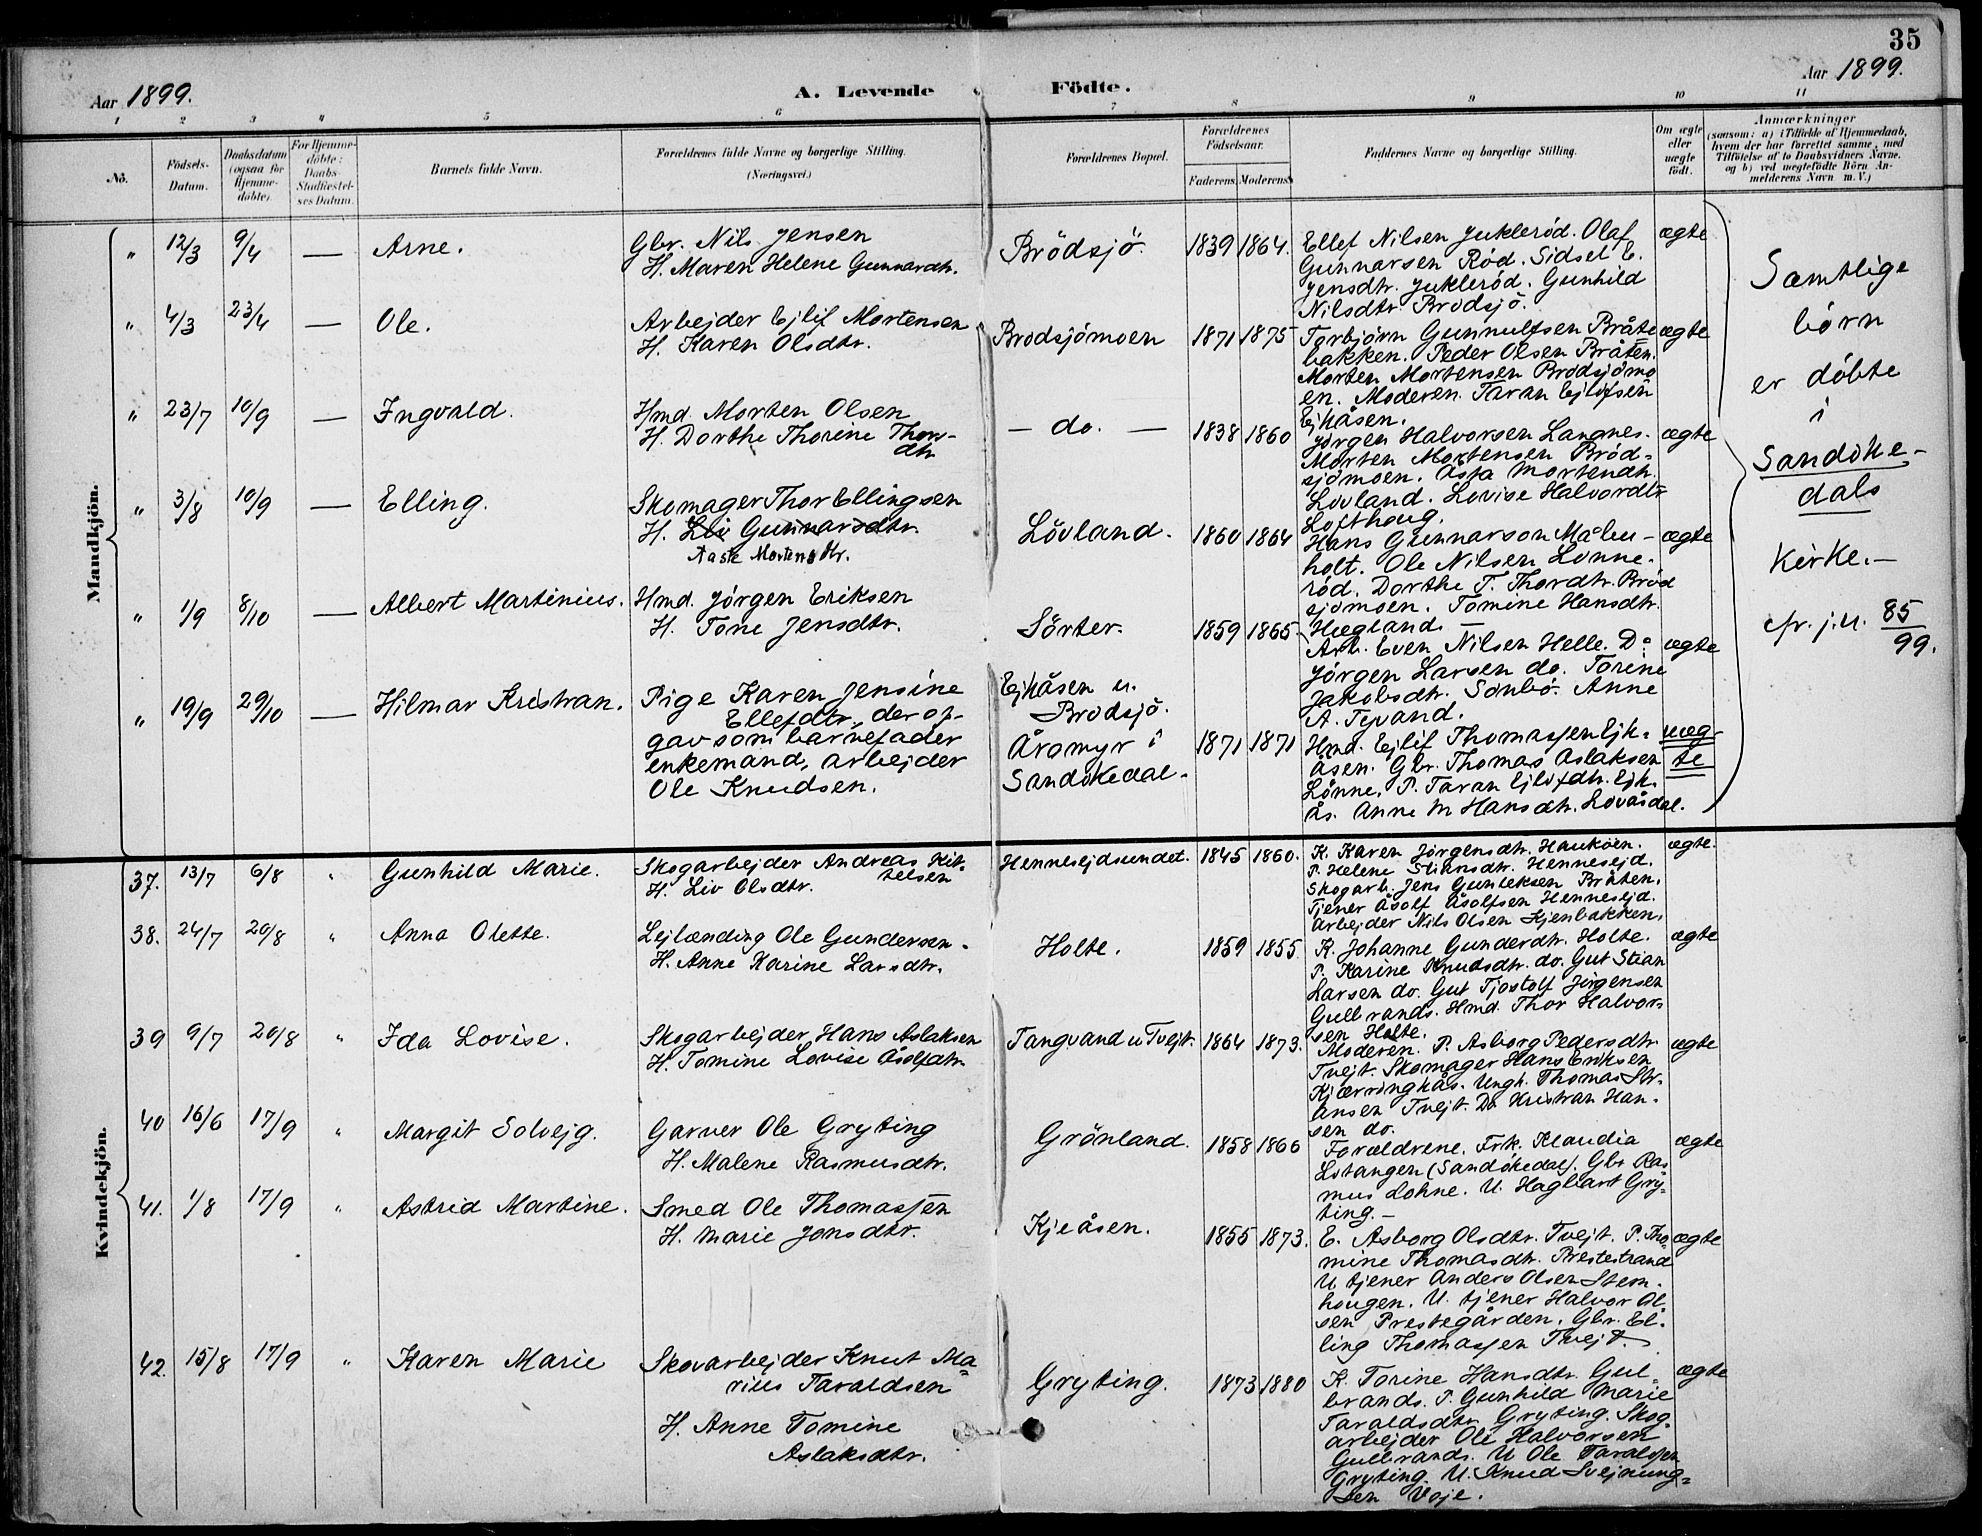 35
Aar 1899. A. Levende Födte. Aar 1899.
1 2 3 4 5 6 7 8 9 10 11
No.
Födsels-
Datum.
Daabsdatum
(ogsaa for
Hjemme-
döbte)
For Hjemme-
döbte:
Daabs-
Stadfæstel-
ses Datum.
Barnets fulde Navn.
Forældrenes fulde Navne og borgerlige Stilling.
(Næringsvei.)
Forældrenes Bopæl.
Forældrenes
Födselsaar.
Faderens. Moderens.
Faddernes Navne og borgerlige Stilling.
Om ægte
eller
uægte
födt.
Anmærkninger
(saasom: a) i Tilfælde af Hjemmedaab,
hvem der har forrettet samme, med
Tilföielse af to Daabsvidners Navne.
og b) ved uægtefödte Börn An-
melderens Navn m. V.)
Mandkjön.
" 12/3 9/4 — Arne.
Gbr. Nils Jensen
H. Maren Helene Gunnardtr.
Brödsjö. 1839 1864.
Ellef Nilsen Juklerød. Olaf
Gunnarsen Rød. Sidsel E.
Jensdtr. Juklerød. Gunhild
Nilsdtr. Brødsjö.
ægte
" 4/3 23/4 — Ole.
Arbejder Ejlif Mortensen
H. Karen Olsdtr.
Brødsjömoen 1871 1875
Torbjörn Gunnulfsen Bråte
bakken. Peder Olsen Bråten.
Morten Mortensen Brødsjömo
en. Moderen. Taran Ejlifsen
Ejkåsen.
ægte
" 23/7 10/9 — Ingvald.
Hmd. Morten Olsen
H. Dorthe Thorine Thor-
dtr.
— do. — 1838 1860
Jørgen Halvorsen Langnes.
Morten Mortensen Brød-
sjömoen. Åsta Mortendtr.
Lovland. Lovise Halvordtr
Lofthoug.
ægte
" 3/8 10/9 — Elling.
Skomager Thor Ellingsen
H. Liv Gunnarsdtr.
Aaste Mortensdtr.
Lövland. 1860 1864
Hans Gunnarson Målu-
holt. Ole Nilsen Lønne-
rød. Dorthe T. Thordtr. Brød
sjömoen. Tomine Hansdtr.
Hægland.
ægte
" 1/9 8/10 — Albert Martinius.
Hmd. Jörgen Eriksen
H. Tone Jensdtr.
Sörter. 1859 1865.
Arb. Even Nilsen Helle. Do
Jörgen Larsen do. Torine
Jakobsdtr. Sønbö. Anne
A. Tyvand.
ægte
" 19/9 29/10 — Hilmar Kristian.
Pige Karen Jensine
Ellefdtr., der op-
gav som barnefader
enkemand, arbejder
Ole Knudsen.
Ejkåsen u.
Brødsjö.
Åromyr i
Sandökedal. 1871 1871
Hmd. Ejlif Thomassen Ejk-
åsen. Gbr. Thomas Aslaksen
Lönne. P. Taran Ejlifdtr. Ejk-
ås. Anne M Hansdtr. Lovåsdal.
uæg-
te
Samtlige
børn
er döbte
i
Sandöke-
dals
kirke.—
cfr. j.n. 85/99.
Kvindekjön.
37. 13/7 6/8 " Gunhild Marie.
Skogarbejder Andreas Kit-
telsen
H. Liv Olsdtr.
Hennesejdsundet. 1845 1860.
K. Karen Jörgensdtr. Haukøen.
P. Helene Stiansdtr. Hennesejd.
Skogarb. Jens Gunleksen Bråten.
Tjener Åsolf Åsolfsen Hennesejd.
Arbejder Nils Olsen Kjenbakken.
ægte.
38. 24/7 20/8 " Anna Olette.
Lejlænding Ole Gundersen.
H. Anne Karine Larsdtr.
Holte. 1859 1855.
K. Johanne Gunderdtr. Holte.
P. Karine Knudsdtr. do. Gut Stian
Larsen do. Gut Tjostolf Jörgensen
Gulbrands. Hmd. Thor Halvor-
sen Holte.
ægte
39 9/7 20/8 " Ida Lovise.
Skogarbejder Hans Aslaksen
H. Tomine Lovise Åsolfdtr.
Tangvand u Tvejt. 1864 1873.
Moderen. P. Asborg Pedersdtr.
Tvejt. Skomager Hans Eriksen
Kjærringkås. Ungk. Thomas Sti-
ansen Tvejt. Do Kristian Han-
sen do.
ægte
40 16/6 17/9 " Margit Solvejg.
Garver Ole Gryting
H. Malene Rasmusdtr.
Grönland. 1858 1866
Forældrene. Frk. Klaudia
Lotangen (Sandökedal). Gbr. Ras
mus Lohne. U. Hagbart Gry-
ting.—
ægte
41. 1/8 17/9 " Astrid Martine.
Smed Ole Thomassen
H. Marie Jonsdtr.
Kjeåsen. 1855 1873.
E. Asborg Olsdtr. Tvejt. P. Tho-
mine Thomasdtr. Prestestrand
U. tjener Anders Olsen Stem-
hougen. U. tjener Halvor Ol
sen Prestegården. Gbr. El-
ling Thomassen Tvejt.
ægte
42. 15/8 17/9 " Karen Marie
Skovarbejder Knut Ma-
rius Taraldsen
H. Anne Tomine
Aslaksdtr.
Gryting. 1873 1880
K. Torine Hansdtr. Gul-
brands. P. Gunhild Marie
Taraldsdtr. Gryting. Skog-
arbejder Ole Halvorsen
Gulbrands. U Ole Taraldsen
Gryting. U. Knud Svejnung-
sen Voje.
ægte